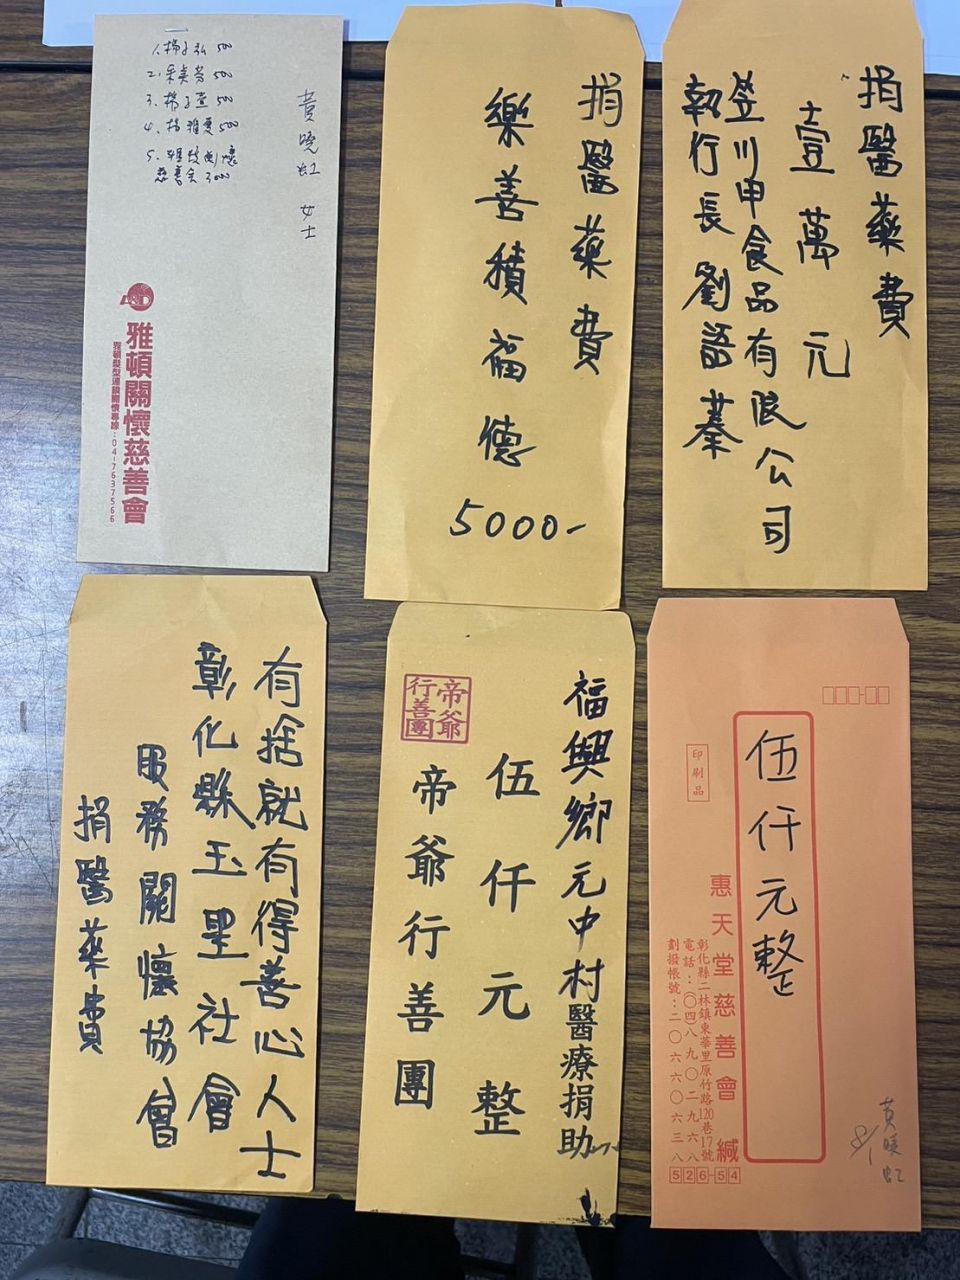 1. 楊子弘 500
500
3. 楊子萱 500
4. 楊雅雯 500
5. 雅頓關懷
慈善會 3000
黃曉虹 女士
雅頓關懷慈善會
雅頓髮型連鎖關懷專線:04-7637566
捐醫藥費
樂善積福德
5000-
捐醫藥費
壹萬元
笠川申食品有限公司
執行長劉語蓁
有捨就有得善心人士
彰化縣玉聖社會
服務關懷協會
捐醫藥費
福興鄉元中村醫療捐助
伍仟元整
帝爺
行善團
帝爺行善團
伍仟元整
印刷品
惠天堂慈善會 緘
彰化縣二林鎮東華里原竹路120巷17號
電話:(〇四)八九〇二九六八
劃撥帳號:二〇六六〇六三八
526-54
黃曉虹
8/1